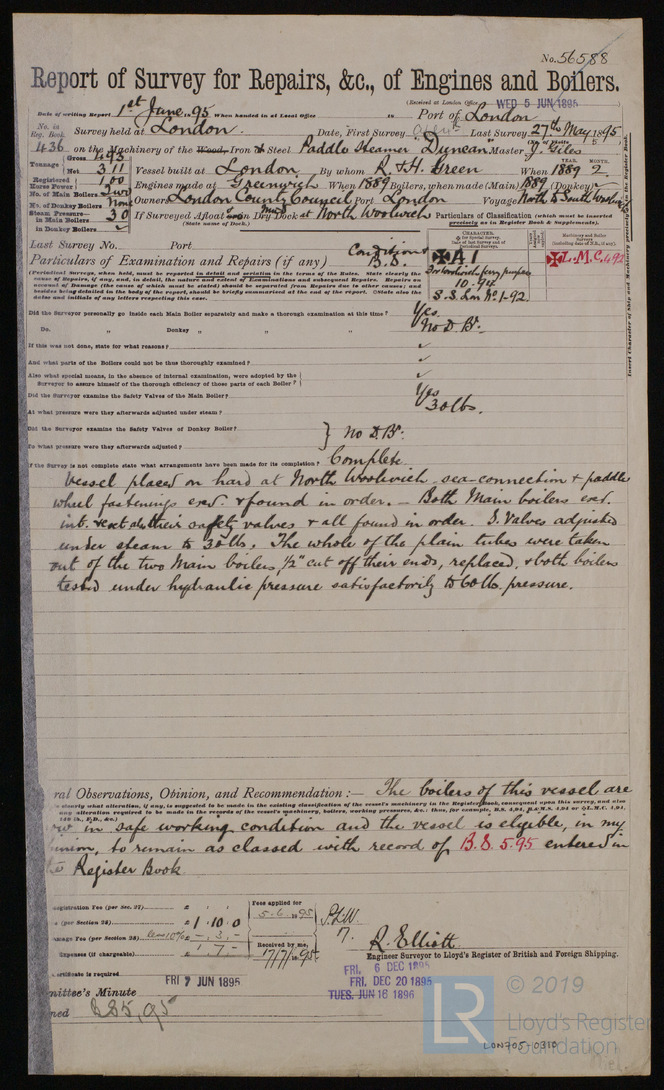 No. 56588
Report of Survey for Repairs, &c., of Engines and Boilers.
(Received at London Office WED 5 JUN 1895
Date of writing Report 1st June 95 When handed in at Local Office 18 Port of London
No. in Reg. Book. Survey held at London. Date, First Survey Last Survey 27th May 1895
436 on the Machinery of the Wood, Iron & Steel Paddle Steamer "Duncan" Master J. Giles
Tonnage Gross 493 Net 311 Vessel built at London. By whom R. & H. Green When 1889 2
Registered Horse Power 100 Engines made at Greenwich When 1889 Boilers, when made (Main) 1889 (Donkey)
No. of Main Boilers Two Owners London County Council Port London Voyage North to South Woolwich
No. of Donkey Boilers None
Steam Pressure in Main Boilers 30 If Surveyed Afloat or in Dry Dock at North Woolwich
in Donkey Boilers
(State name of Dock.)
Particulars of Classification (which must be inserted precisely as in Register Book & Supplements).
Last Survey No. Port
Particulars of Examination and Repairs (if any) Condition B.S.
CHARACTER.
A1
For Woolwich ferry purposes
10.94
S.S. Lon No. 1-92.
L.M.C. 4,92
(Periodical Surveys, when held, must be reported in detail and seriatim in the terms of the Rules. State clearly the cause of Repairs, if any, and, in detail, the nature and extent of Examinations and subsequent Repairs. Repairs on account of Damage (the cause of which must be stated) should be separated from Repairs due to other causes; and besides being detailed in the body of the report, should be briefly summarised at the end of the report. State also the dates and initials of any letters respecting this case.
Insert Character of Ship and Machinery precisely as in the Register Book.
Did the Surveyor personally go inside each Main Boiler separately and make a thorough examination at this time? Yes
Do. " Donkey " " " No D. Br.
If this was not done, state for what reasons?
And what parts of the Boilers could not be thus thoroughly examined?
Also what special means, in the absence of internal examination, were adopted by the
Surveyor to assure himself of the thorough efficiency of those parts of each Boiler?
Did the Surveyor examine the Safety Valves of the Main Boiler? Yes
At what pressure were they afterwards adjusted under steam? 30 lbs.
Did the Surveyor examine the Safety Valves of Donkey Boiler?
To what pressure were they afterwards adjusted? No D. Br.
If the Survey is not complete state what arrangements have been made for its completion? Complete
Vessel placed on hard at North Woolwich - sea-connection & paddle
wheel fastenings exed. & found in order. - Both Main boilers exed.
int. & ext. also their safety valves & all found in order. S. Valves adjusted
under steam to 30 lbs. The whole of the plain tubes were taken
out of the two Main boilers, 1/2" cut off their ends, replaced, & both boilers
tested under hydraulic pressure satisfactorily to 60 lb. pressure.
ral Observations, Opinion, and Recommendation :- The boilers of this vessel are
clearly what alteration, if any, is suggested to be made in the existing classification of the vessel's machinery in the Register Book, consequent upon this survey, and also
any alteration required to be made in the records of the vessel's machinery, boilers, working pressures, &c.: thus, for example, B.S. 4,94, B.&M.S. 4,94 or L.M.C. 4,94,
in safe working condition and the vessel is eligible, in my
inion, to remain as classed with record of B.S. 5.95 entered in
Register Book.
egistration Fee (per Sec. 27) £
(per Section 28) £ 1.10.0
mage Fee (per Section 28) less 10% £ - 3. -
Expenses (if chargeable) £ 1.7.-
Fees applied for 5.6.1895
Received by me, 17/7/1895
7.
R. Elliott.
Engineer Surveyor to Lloyd's Register of British and Foreign Shipping.
ertificate is required
mittee's Minute FRI 7 JUN 1895
FRI. 6 DEC 1895
FRI. DEC 20 1895
TUES. JUN 16 1896
ned BS5,95
LR © 2019
Lloyd's Register
Foundation
LON705-0310